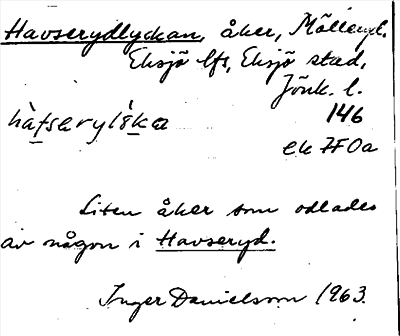 Havserydlyckan, åker, Mölleryd.
Eksjö lfs, Eksjö stad,
Jönk. l.
146
hàfserylȣka
ek 7F0a
Liten åker som odlades
av någon i Havseryd.
Inger Danielsson 1963.